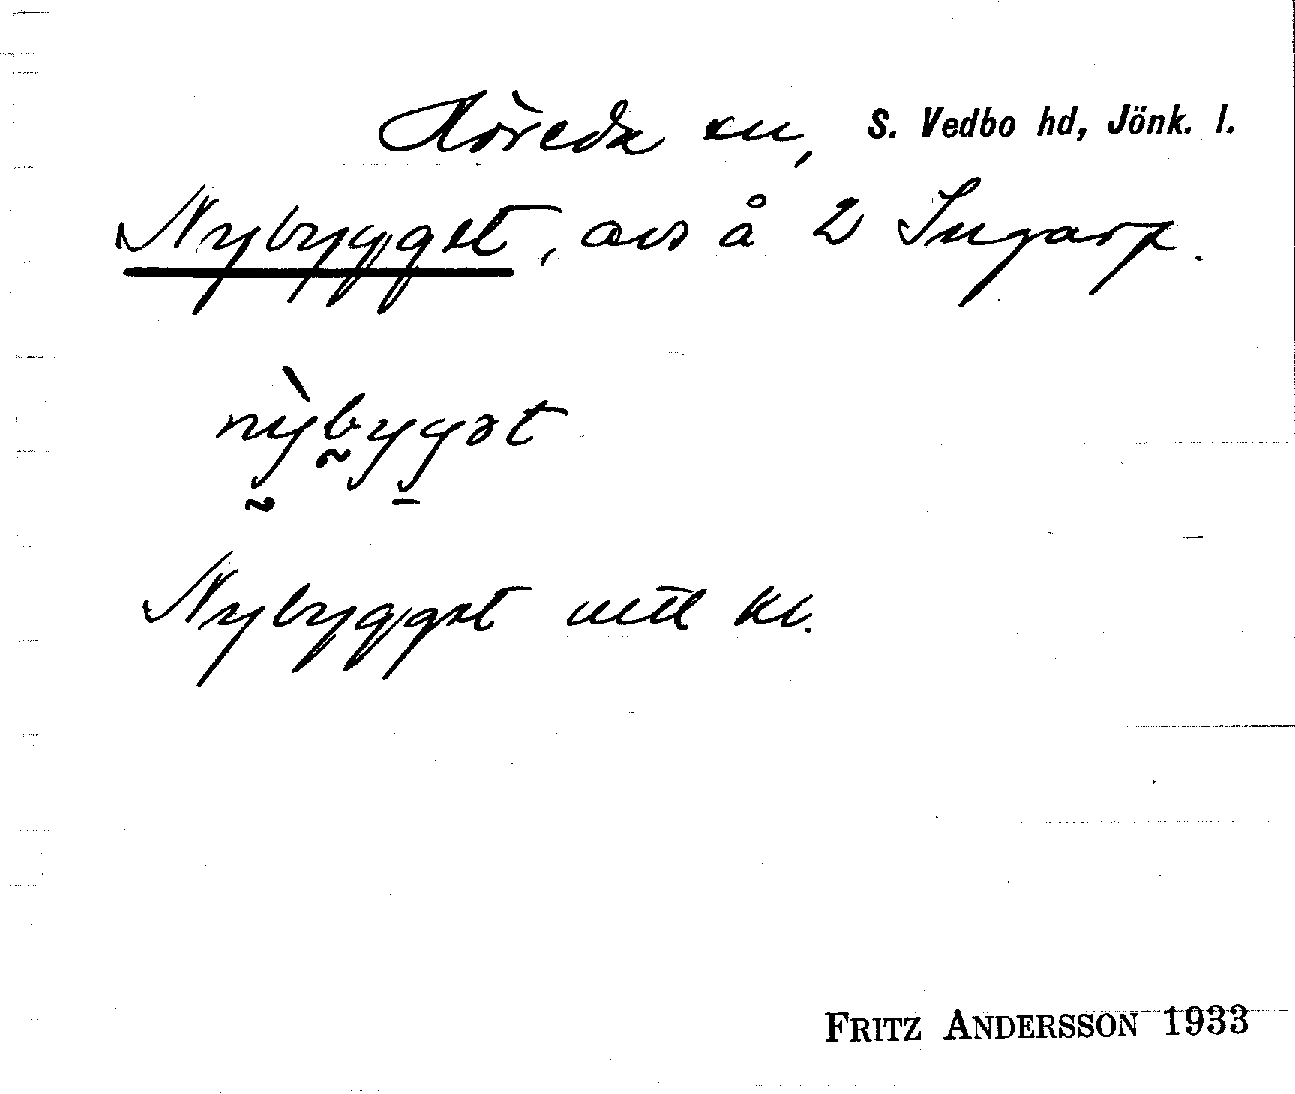 Höreda sn, S. Vedbo hd, Jönk. l.
Nybygget, avs å 2 Ingarp.
nỳbygət
Nybygget uttl kl.
FRITZ ANDERSSON 1933